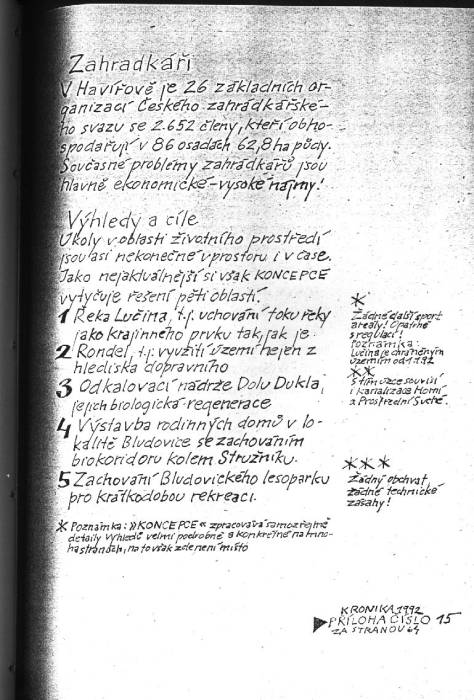 Zahradkáři
V Havířově je 26 základních or-
ganizací Českého zahrádkářské-
ho svazu se 2.652 členy, kteří obho-
spodařují v 86 osadách 62,8 ha půdy.
Současné problémy zahrádkářů jsou
hlavně ekonomické - vysoké nájmy!
Výhledy a cíle
Úkoly v oblasti životního prostředí
jsou asi nekonečné v prostoru i v čase.
Jako nejaktuálnější si však KONCEPCE
vytyčuje řešení pěti oblastí.
1 Řeka Lučina, t.j. uchování toku řeky
jako krajinného prvku tak, jak je
2 Rondel, t.j. využití území nejen z
hlediska dopravního
3 Odkalovací nádrže Dolu Dukla,
jejich biologická regenerace
4 Výstavba rodinných domů v lo-
kalitě Bludovice se zachováním
biokoridoru kolem Stružníku.
5 Zachování Bludovického lesoparku
pro krátkodobou rekreaci.
* Poznámka: »KONCEPCE« zpracovává samozřejmě
detaily výhledů velmi podrobně a konkrétně na mno-
ha stranách, na to však zde není místo
*
Žádné další sport.
areály! Opatrně
s regulací!
Poznámka:
Lučina je chráněným
územím od 1.1.92
**
S tím úzce souvisí
i kanalizace Horní
a Prostřední Suché.
***
Žádný obchvat,
žádné technické
zásahy!
KRONIKA 1992
PŘÍLOHA ČÍSLO 15
ZA STRANOU 64